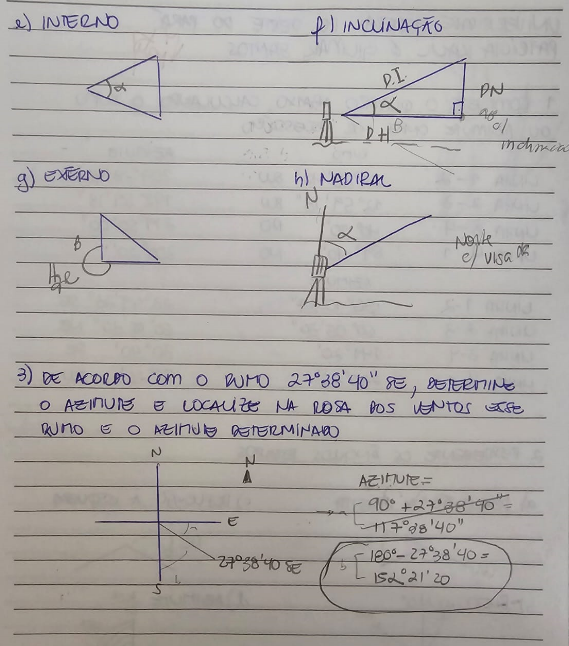 e) INTERNO
f) INCLINAÇÃO
α
D.I.
α
DN
DH
B
g) EXTERNO
h) NADIRAL
N
B
α
Hz
Norte
c/ visada
3) DE ACORDO COM O RUMO 27°38'40" SE, DETERMINE
O AZIMUTE E LOCALIZE NA ROSA DOS VENTOS ESSE
RUMO E O AZIMUTE DETERMINADO
N
N
E
S
27°38'40 SE
AZIMUTE =
90° + 27°38'40" =
117°38'40"
180° - 27°38'40 =
152°21'20